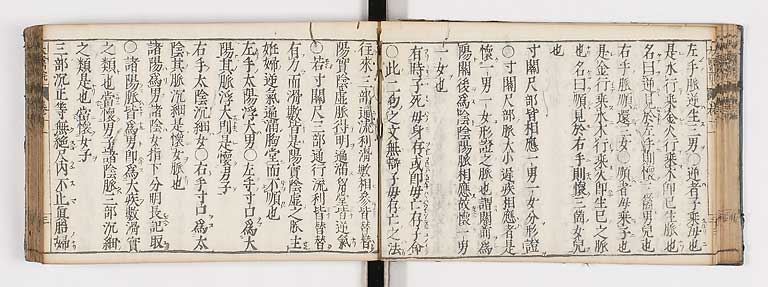 左手脈逆生三男○逆者子乘母也
是水行乘金火行乘木卽巳生脈也
名曰逆見於左手則懷三箇男兒也
右手脈順還三女○順者母乘子也
是金行乘水木行乘火卽生巳之脈
也名曰順見於右手則懷三箇女兒
也
寸關尺部皆相應一男一女分形證
○寸關尺部脈大小遲疾相應者是
懷一男一女形證之脈也謂關前爲
陽關後爲陰陰陽脈相應故懷一男
一女也
有時子死母身存或卽母亡有子命
○此二句之文無辭子母存亡之法
往來三部通流利滑數相參皆替替
陽實陰虛脈得明遍滿胸堂皆逆氣
○若寸關尺三部通行流利皆替替
有力而滑數皆是陽實陰虛之脈主
姙婦逆氣遍滿胸堂而不順也
左手太陽浮大男○左手寸口爲太
陽其脈浮大卽是懷男子
右手太陰沉細女○右手寸口爲太
陰其脈沉細是懷女脈也
諸陽爲男諸陰女指下分明長記取
○諸陽脈皆爲男卽爲大疾數滑實
之類是也當懷男子諸陰脈三部沉細
之類是也當懷女子
三部沉正等無絕尺內不止眞胎婦